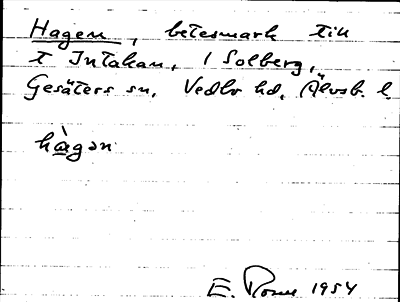 Hagen, betesmark till
t Intakan, 1 Solberg,
Gesäters sn, Vedbo hd, Älvsb. l.
hàgən
E. 1954